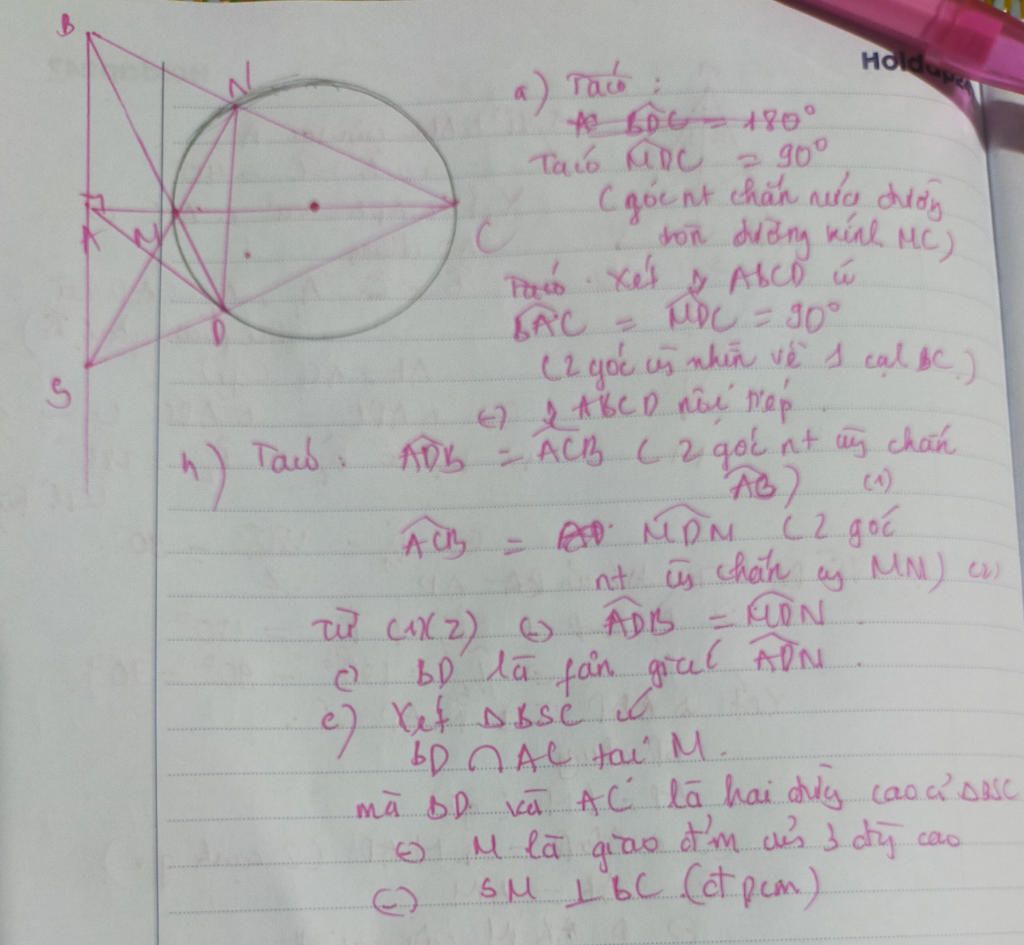 B
N
A
M
C
D
S
Holdapen
a) Ta có :
BDC = 180°
Ta có MDC = 90°
( góc nt chắn nửa đường
tròn đường kính MC)
Ta có . Xét ABCD có
BAC = MDC = 90°
( 2 góc cùng nhìn về 1 cạnh BC )
ABCD nội tiếp .
b) Ta có : ADB = ACB ( 2 góc nt cùng chắn
AB ) (1)
ACB = MDN ( 2 góc
nt cùng chắn MN ) (2)
Từ (1)(2) ADB = MDN .
BD là fân giác ADN .
c) Xét △BSC có
BD ∩ AC tại M .
mà BD và AC là hai đường cao của △BSC
M là giao điểm của 3 đg cao
SM ⊥ BC (đpcm)